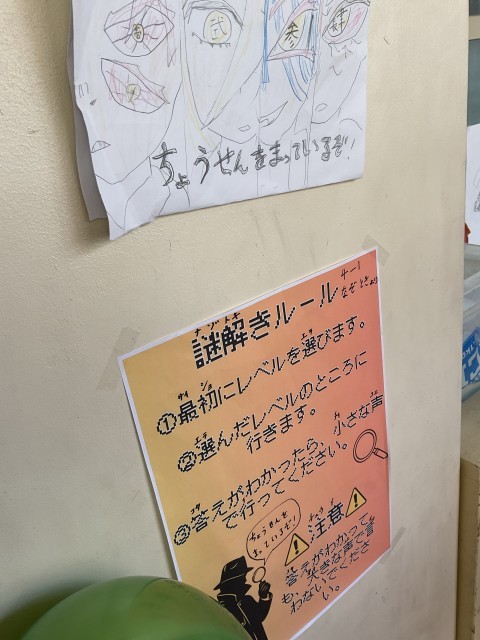 壱
弐
参
ちょうせんをまっているぞ!
4-1
なぞときより
ナゾトキ
謎解きルール
サイショ
①最初にレベルを選びます。
エラ
②選んだレベルのところに
行きます。
コタ
③答えがわかったら、小さな声
で行ってください。
ちょうせんを
まっているぞ!
注意
答えがわかって
も、大きな声で言
わないでくださ
い。